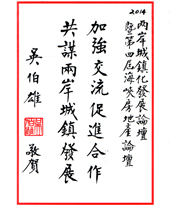 2014
兩岸城鎮化發展論壇
暨第四屆海峽房地產論壇
加強交流促進合作
共謀兩岸城鎮發展
吳伯雄
敬賀